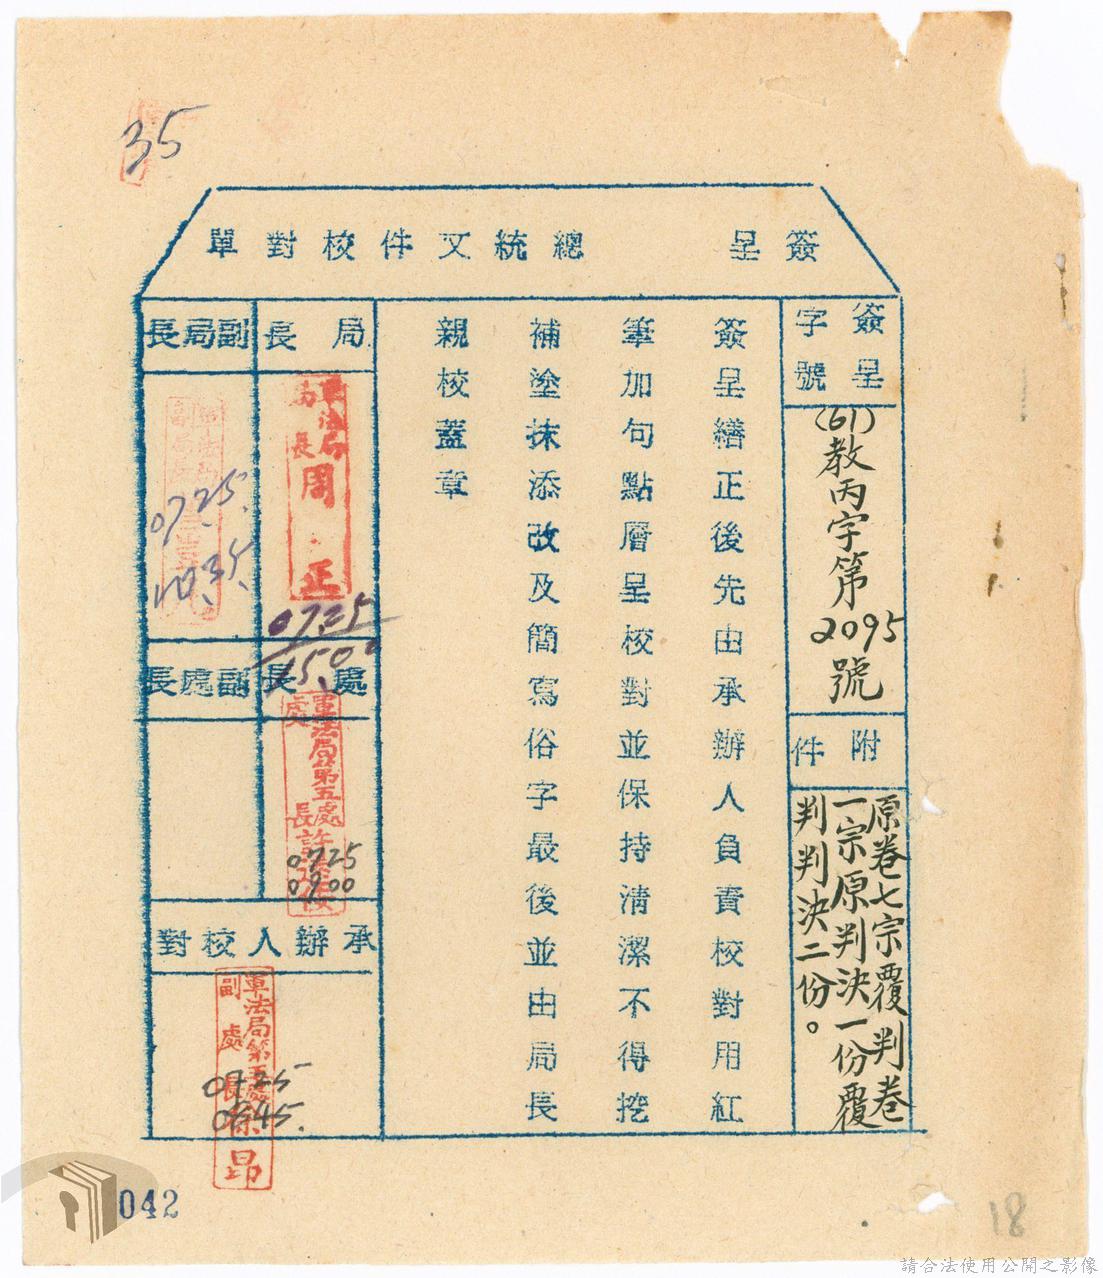 35
簽呈 總統文件校對單
簽呈
字號
(61)教丙字第2095號
附件
原卷七宗覆判卷
一宗原判決一份覆
判判決二份。
簽呈繕正後先由承辦人負責校對用紅
筆加句點層呈校對並保持清潔不得挖
補塗抹添改及簡寫俗字最後並由局長
親校蓋章
局長
軍法局
局長
周正
0725
1500
副局長
軍法局
副局長
0725
1035
處長
軍法局第五處
處長
許
0725
0900
副處長
承辦人校對
軍法局第五處
副處長
徐昂
0725
0845
042
18
請合法使用公開之影像